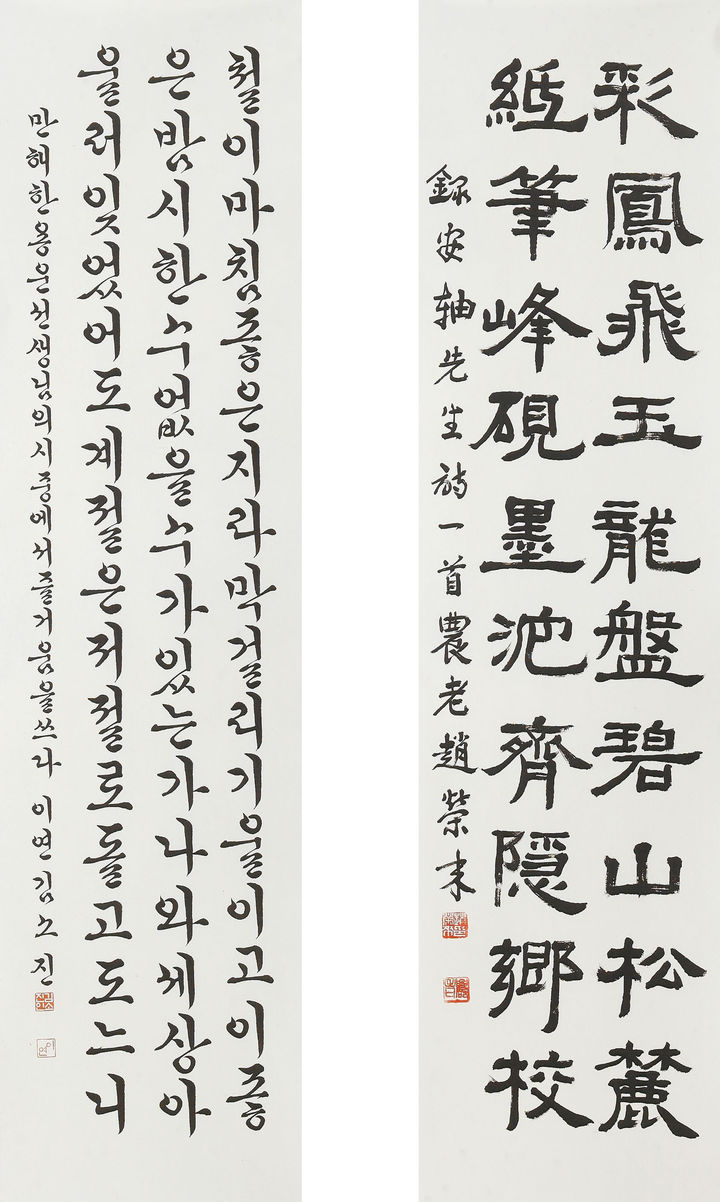 彩鳳飛玉龍盤碧山松麓
紙筆峰硯墨池齊隱鄉校
錄安軸先生詩一首 農老 趙榮來
철이마침좋은지라막걸리기울이고이좋
은밤시한수없을수가있는가나와세상아
울러잊었어도계절은저절로돌고도느니
만해한용운선생님의시중에서즐거움을쓰다 이연 김소진